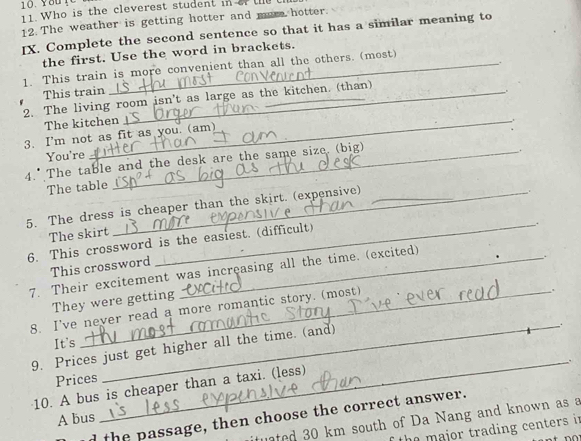 10. You
11. Who is the cleverest student in or the
12. The weather is getting hotter and hotter.
IX. Complete the second sentence so that it has a similar meaning to
the first. Use the word in brackets.
1. This train is more convenient than all the others. (most)
This train is the most convenient.
2. The living room isn't as large as the kitchen. (than)
The kitchen is larger than.
3. I'm not as fit as you. (am)
You're fitter than I am.
4. The table and the desk are the same size. (big)
The table isn't as big as the desk.
5. The dress is cheaper than the skirt. (expensive)
The skirt is more expensive than.
6. This crossword is the easiest. (difficult)
This crossword.
7. Their excitement was increasing all the time. (excited)
They were getting excited.
8. I've never read a more romantic story. (most)
It's the most romantic story I've ever read.
9. Prices just get higher all the time. (and)
Prices.
10. A bus is cheaper than a taxi. (less)
A bus is less expensive than.
the passage, then choose the correct answer.
30 km south of Da Nang and known as a
major trading centers in